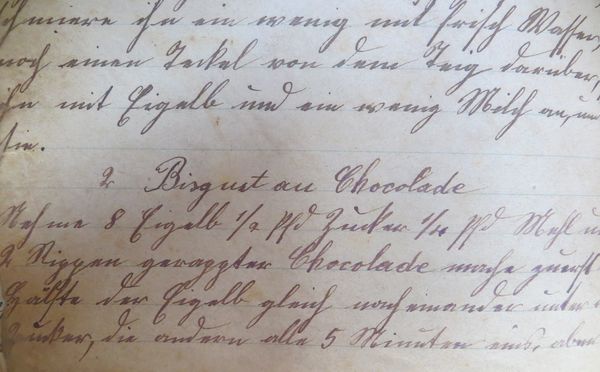 schmiere ihn ein wenig mit frisch Wasser,
noch einen Teckel von dem Teig darüber,
ihn mit Eigelb und ein wenig Milch an, und
sie.
2 Bisquet au Chocolade
Nehme 8 Eigelb 1/2 Pfd Zucker 1/4 Pfd Mehl u
2 Rippen gerappter Chocolade mache zuerst
Hälfte der Eigelb gleich nacheinander unter
Zucker, die andern alle 5 Minuten eins, aber